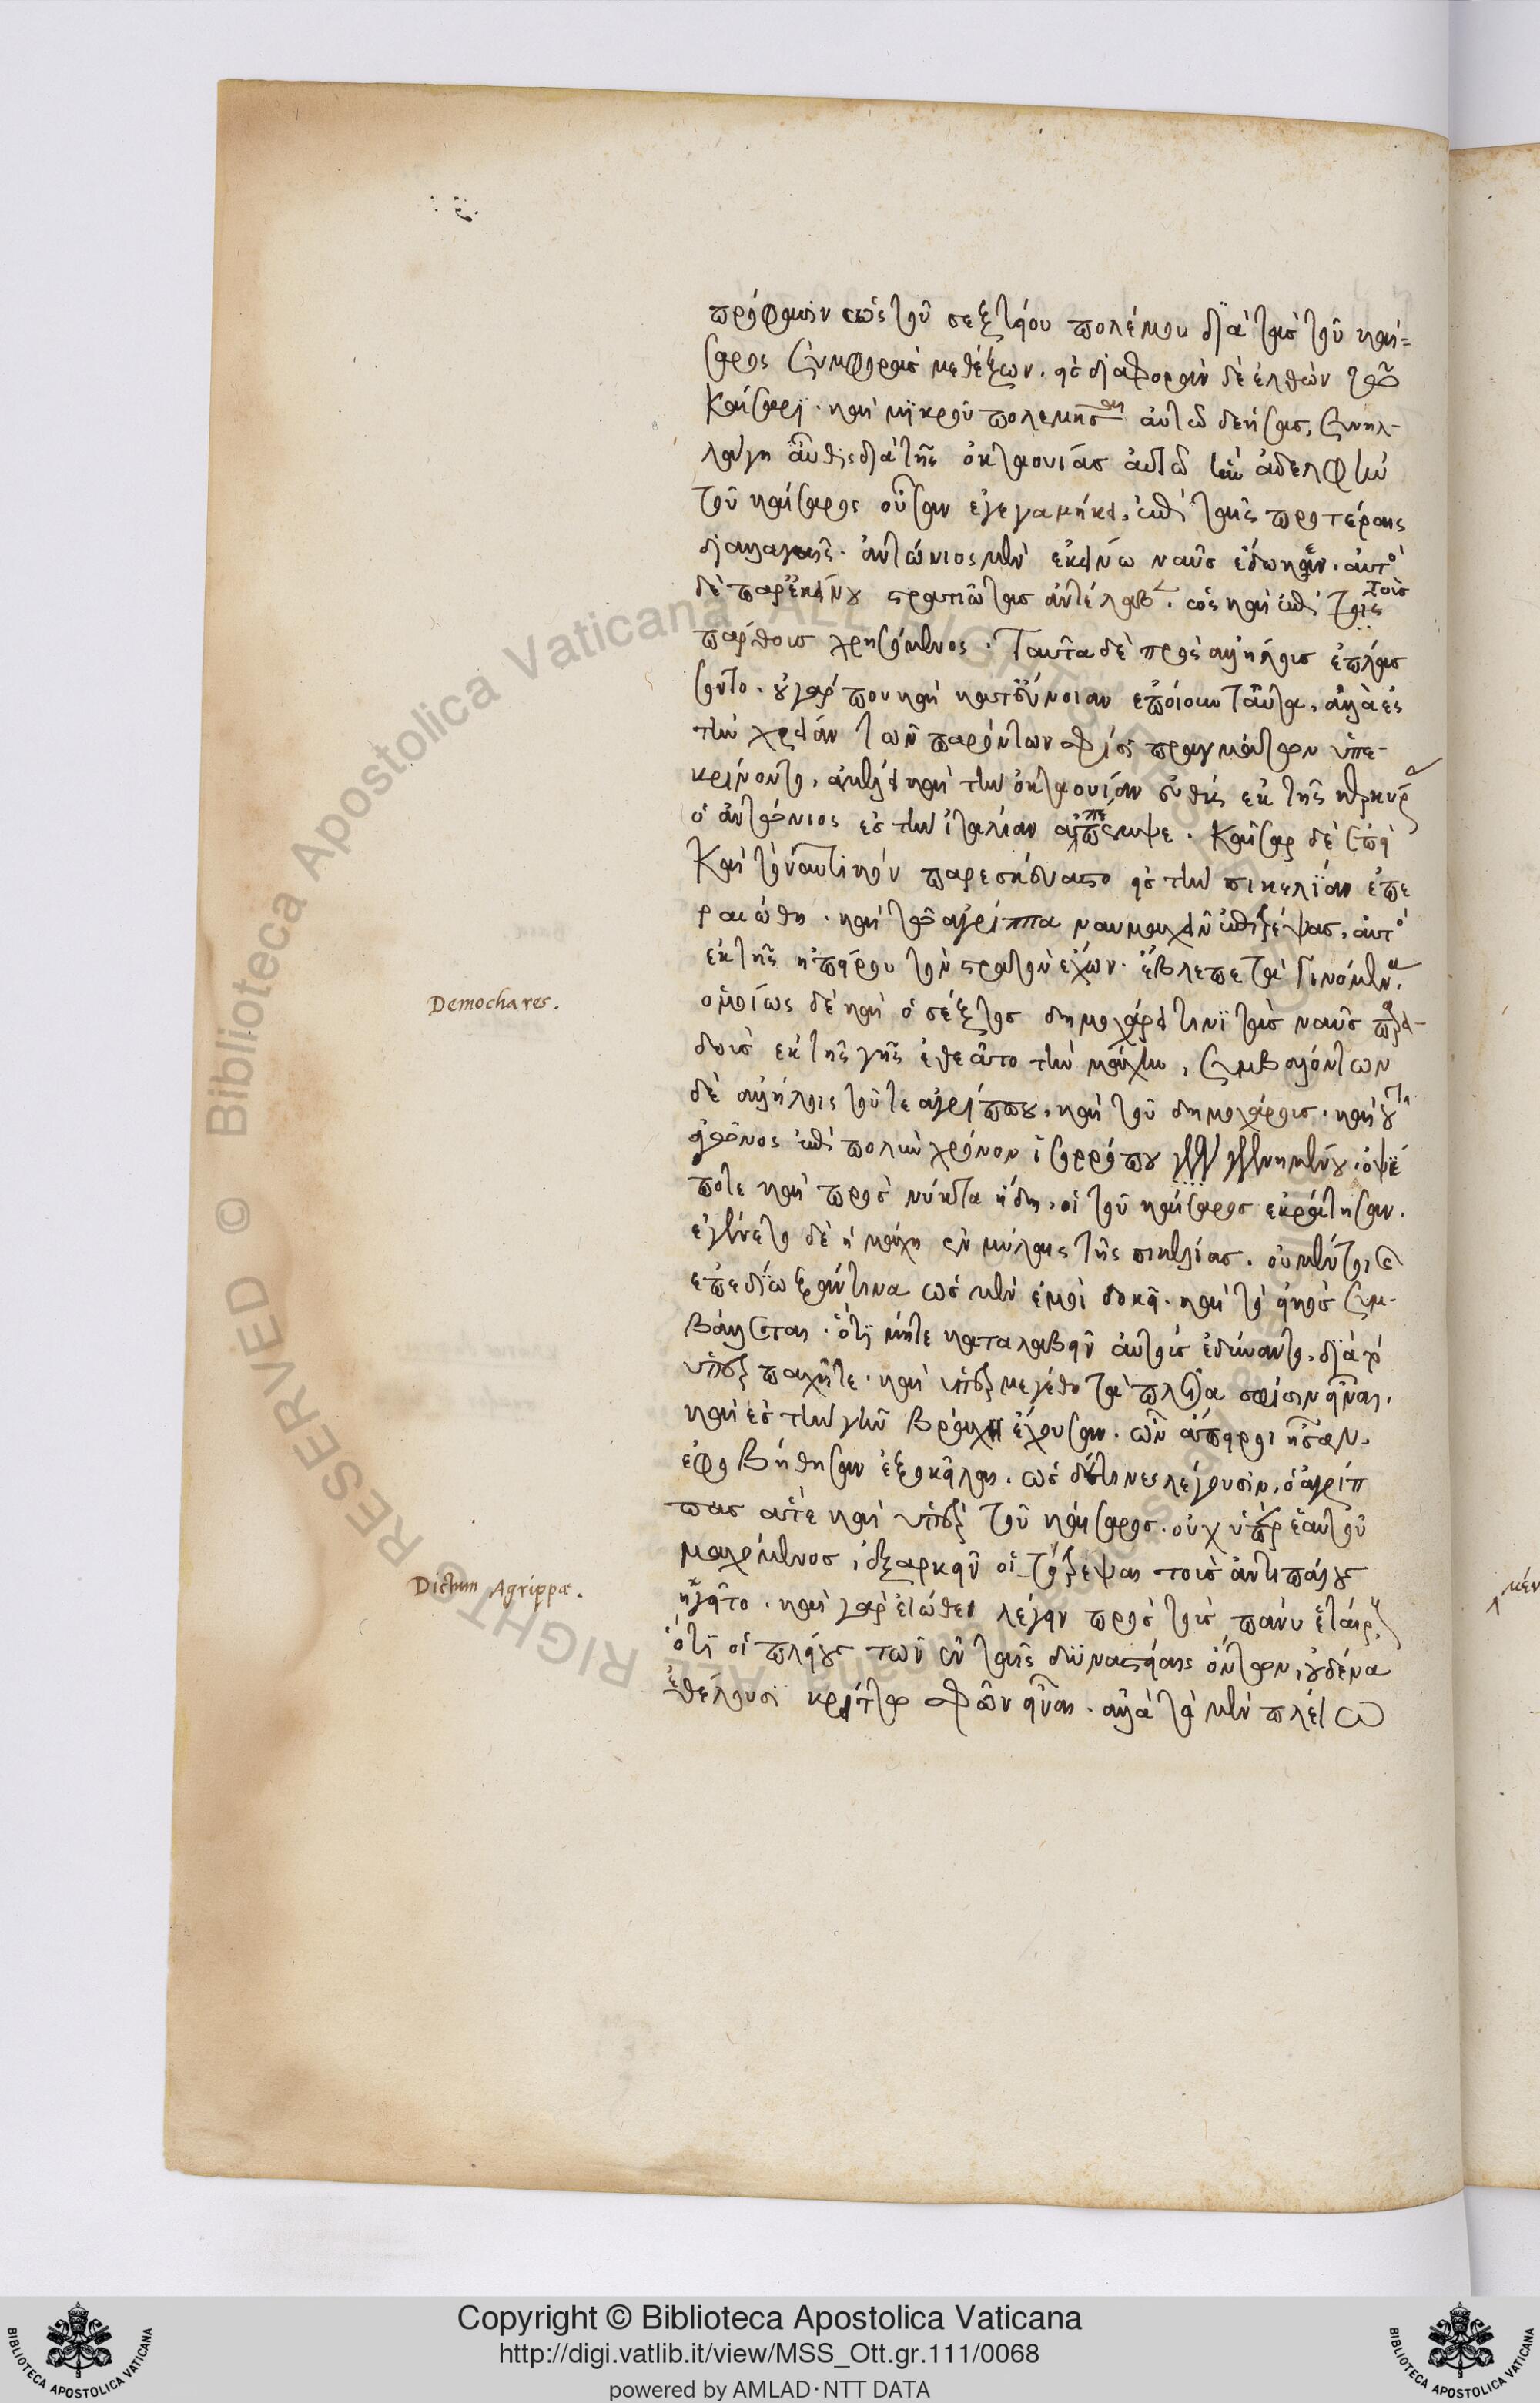 πρόφασιν ὡς τοῦ σεξτείου πολέμου διὰ τὰς τοῦ καί-
σαρος συμφορὰς μεθέξων. εἰς διαφορὰν δὲ ἐλθὼν τῷ
Καίσαρι. καὶ μικροῦ πολεμῆσαι αὐτῷ δεήσας, συνηλ-
λάγη αὖθις διὰ τῆς ὀκταουίας αὐτῷ ἣν ἀδελφὴν
τοῦ καίσαρος οὖσαν ἐγεγαμήκει, ἐπὶ ταῖς προτέραις
διαλλαγαῖς. ἀντώνιος μὲν ἐκείνω ναῦς ἔδωκεν. αὐτὸς
δὲ παρ' ἐκείνου στρατιώτας ἀντέλαβεν. ὡς καὶ ἐπὶ τοῖς
πάρθοις χρησόμενος. Ταῦτα δὲ πρὸς ἀλλήλους ἐπλάσ
σοντο. οὐ γάρ που καὶ κατ' εὔνοιαν ἐποίουν ταῦτα, ἀλλὰ ἐς
τὴν χρείαν τῶν παρόντων σφίσι πραγμάτων ὑπε-
κρίνοντο, ἀμέλει καὶ τὴν ὀκταουίαν εὐθὺς ἐκ τῆς κερκύρας
ὁ ἀντώνιος ἐς τὴν ἰταλίαν ἀπέπεμψε. Καῖσαρ δὲ ἐπεὶ
Καὶ τὸ ναυτικὸν παρεσκεύαστο εἰς τὴν σικελίαν ἐπε
ραιώθη. καὶ τῷ ἀγρίππα ναυμαχεῖν ἐπιτρέψας, αὐτὸς
ἐκ τῆς ἠπείρου τὸν στρατὸν ἔχων. ἔβλεπε τὰ γινόμενα.
ὁμοίως δὲ καὶ ὁ σέξτος δημοχάρει τινὶ τὰς ναῦς παρα-
δοὺς ἐκ τῆς γῆς ἐθεᾶτο τὴν μάχην, συμβαλόντων
δὲ ἀλλήλοις τοῦ τε ἀγρίππου, καὶ τοῦ δημοχάρους. καὶ τοῦ
ἀγῶνος ἐπὶ πολὺν χρόνον ἰσορρόπου γεγενημένου, ὀψέ
ποτε καὶ πρὸς νύκτα ἤδη, οἱ τοῦ καίσαρος ἐκράτησαν.
ἐγένετο δὲ ἡ μάχη ἐν μύλαις τῆς σικελίας. οὐ μέντοι γε
ἐπεδίωξάν τινα ὡς μὲν ἐμοὶ δοκεῖ. καὶ τὸ εἰκὸς συμ-
βάλλεται. ὅτι μήτε καταλαβεῖν αὐτοὺς ἐδύναντο, διὰ τὸ
ὑπὲρ πάχει τε. καὶ ὑπὲρ μεγέθει τὰ πλοῖα σφίσιν εἶναι.
καὶ ἐς τὴν γῆν βράχη ἔχουσαν. ὧν ἄπειροι ἦσαν.
ἐφοβήθησαν ἐξοκεῖλαι. ὡς δέ τινες λέγουσιν, ὁ ἀγρίπ
πας ἅτε καὶ ὑπὲρ τοῦ καίσαρος. οὐχ ὑπὲρ ἑαυτοῦ
μαχόμενος, ἐξαρκεῖν οἱ τὸ τρέψαι τοὺς ἀντιπάλους
ἡγεῖτο. καὶ γὰρ εἰώθει λέγειν πρὸς τοὺς πάνυ ἑταίρους
ὅτι οἱ πλείους τῶν ἐν ταῖς δυναστείαις ὄντων, οὐδένα
ἐθέλουσι κρείττω σφῶν εἶναι. ἀλλὰ τὰ μὲν πλείω
Demochares.
Dictum Agrippæ.
μέν
Copyright © Biblioteca Apostolica Vaticana
http://digi.vatlib.it/view/MSS_Ott.gr.111/0068
powered by AMLAD·NTT DATA